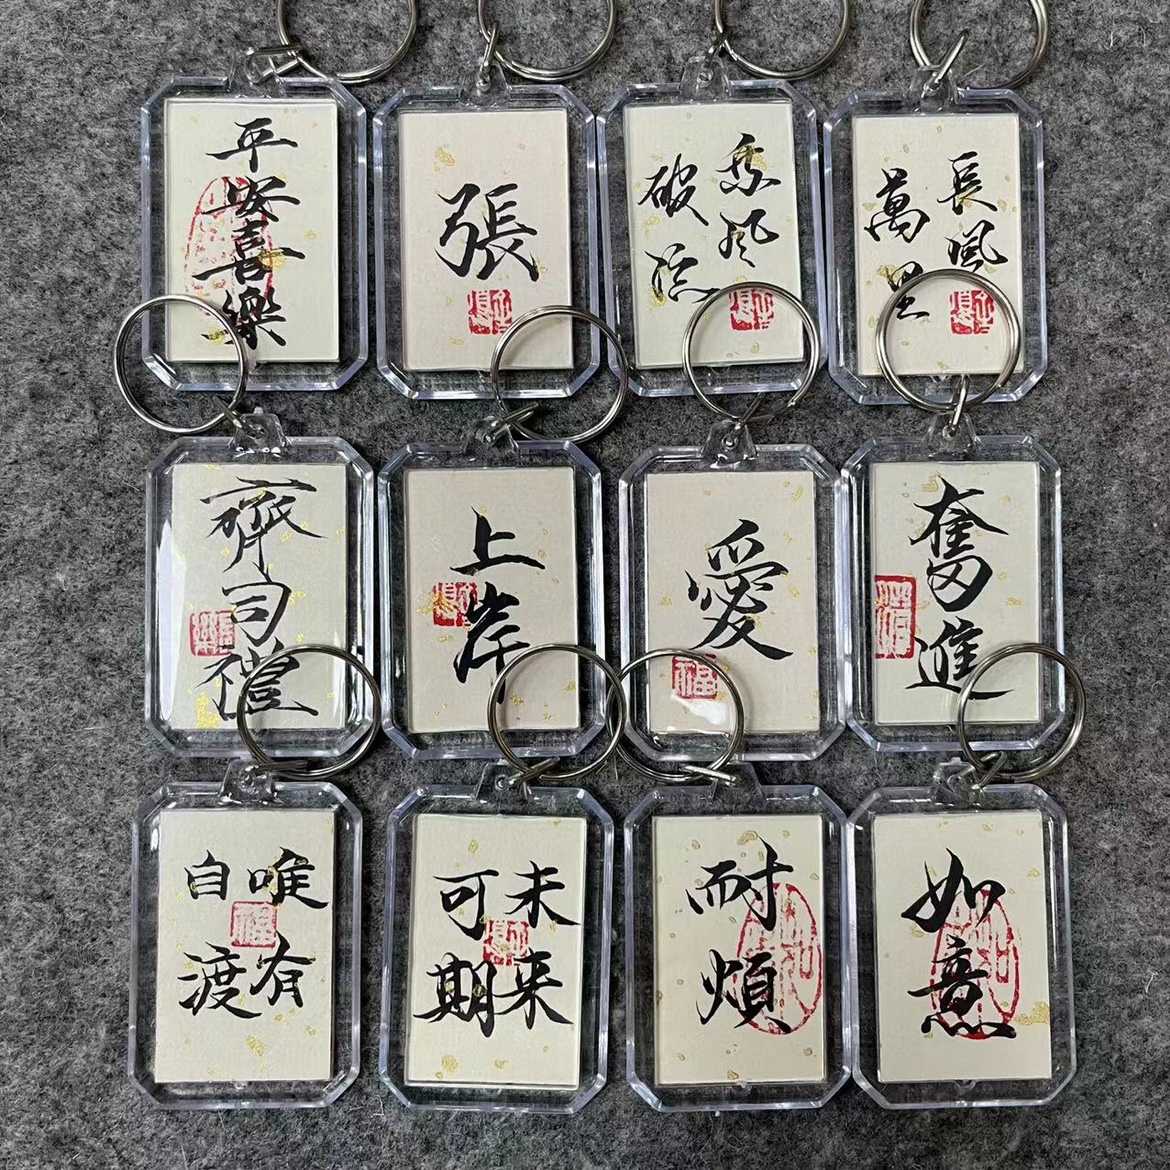 平安喜樂
張
乘风
破浪
長風
萬里
齊司禮
上岸
愛
福
奮進
唯有
自渡
福
未来
可期
耐煩
如意